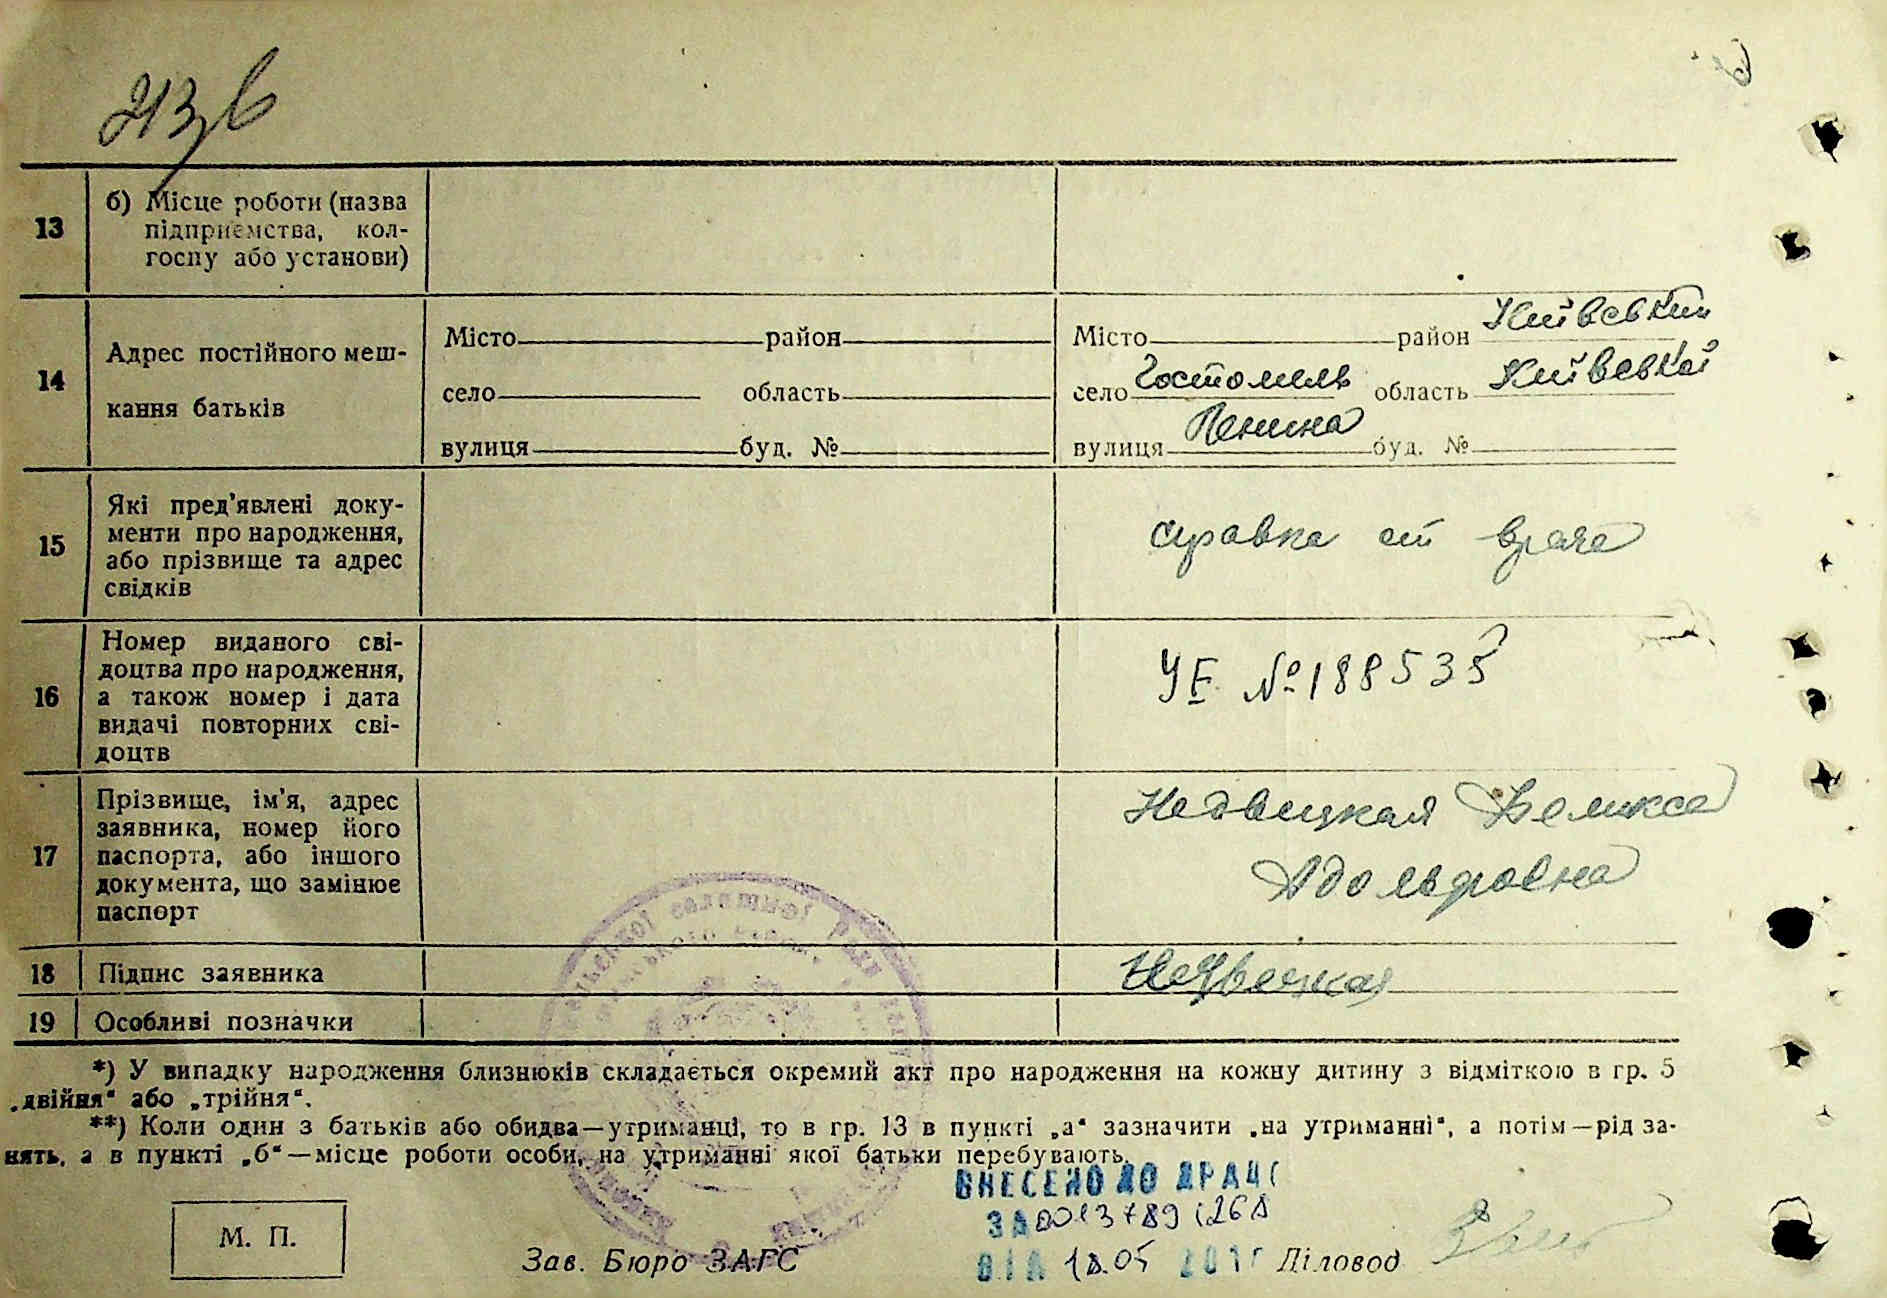 213в
13 б) Місце роботи (назва
підприємства, кол-
госпу або установи)
14 Адрес постійного меш-
кання батьків
Місто район
село область
вулиця буд. №
Місто район Київський
село Гостомель область Київської
вулиця Ленина буд. №
15 Які пред'явлені доку-
менти про народження,
або прізвище та адрес
свідків
справка от врача
16 Номер виданого сві-
доцтва про народження,
а також номер і дата
видачі повторних сві-
доцтв
УЕ №188535
17 Прізвище, ім'я, адрес
заявника, номер його
паспорта, або іншого
документа, що замінює
паспорт
Недвецкая Феликса
Адольфовна
18 Підпис заявника Недвецкая
19 Особливі позначки
*) У випадку народження близнюків складається окремий акт про народження на кожну дитину з відміткою в гр. 5
„двійня“ або „трійня“.
**) Коли один з батьків або обидва—утриманці, то в гр. 13 в пункті „а“ зазначити „на утриманні“, а потім—рід за-
нять, а в пункті „б“—місце роботи особи, на утриманні якої батьки перебувають.
ВНЕСЕНО ДО ДРАЦС
ЗА
ВІД 18.05
М. П.
Зав. Бюро ЗАГС Діловод